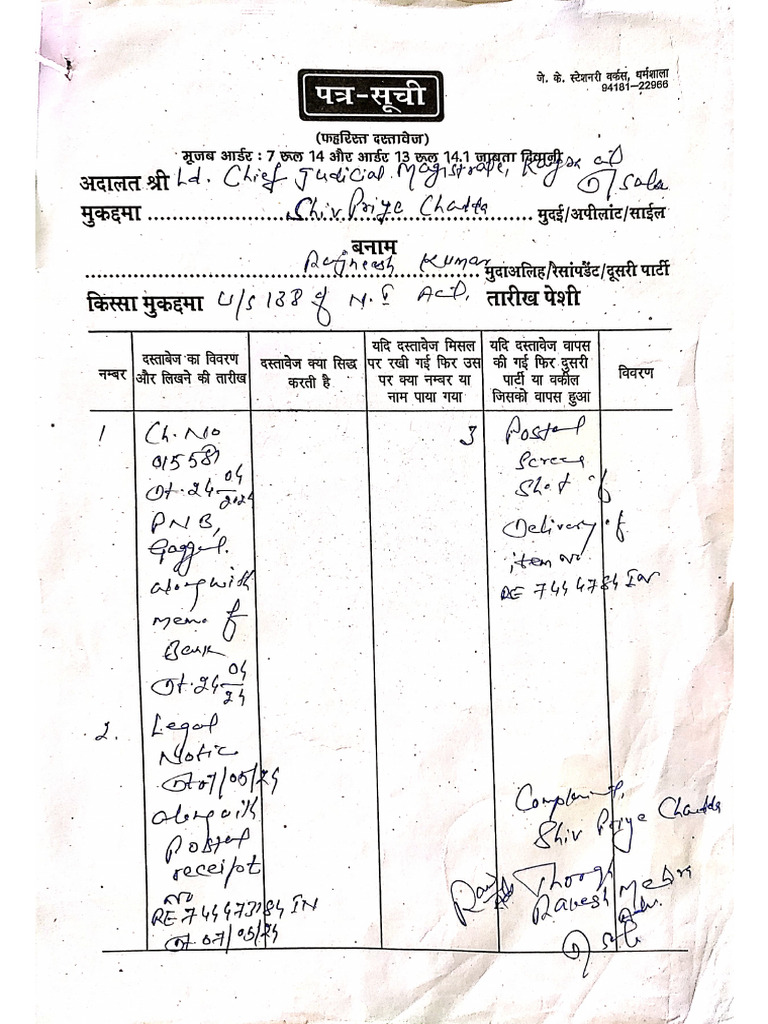 जे. के. स्टेशनरी वर्कस, धर्मशाला
94181-22966
पत्र-सूची
(फहरिस्त दस्तावेज)
मूजब आर्डर : 7 रूल 14 और आर्डर 13 रूल 14.1 जाबता दिवानी
अदालत श्री Ld. Chief Judicial Magistrate, Kangra at D/sala
मुकद्दमा Shiv Priye Chadda मुदई/अपीलांट/साईल
बनाम
Rajneesh Kumar मुदाअलिह/रेसांपडेंट/दूसरी पार्टी
किस्सा मुकद्दमा U/S 138 of N.I Act. तारीख पेशी
नम्बर
दस्तावेज का विवरण
और लिखने की तारीख
दस्तावेज क्या सिद्ध
करती है
यदि दस्तावेज मिसल
पर रखी गई फिर उस
पर क्या नम्बर या
नाम पाया गया
यदि दस्तावेज वापस
की गई फिर दुसरी
पार्टी या वकील
जिसको वापस हुआ
विवरण
1 Ch. No
015581
Dt. 24-04
2024
PNB,
Gaggal.
alongwith
memo of
Bank
Dt. 24-04
24
2. Legal
Notice
Dt 07/05/24
alongwith
Postal
receipt
no
Dt 07/05/24
3 Postal
Screen
Shot of
Delivery of
item no
RE 7444784 IN
Complainant,
Shiv Priye Chadda
Through
Rakesh Mehra
Adv.
D/sala